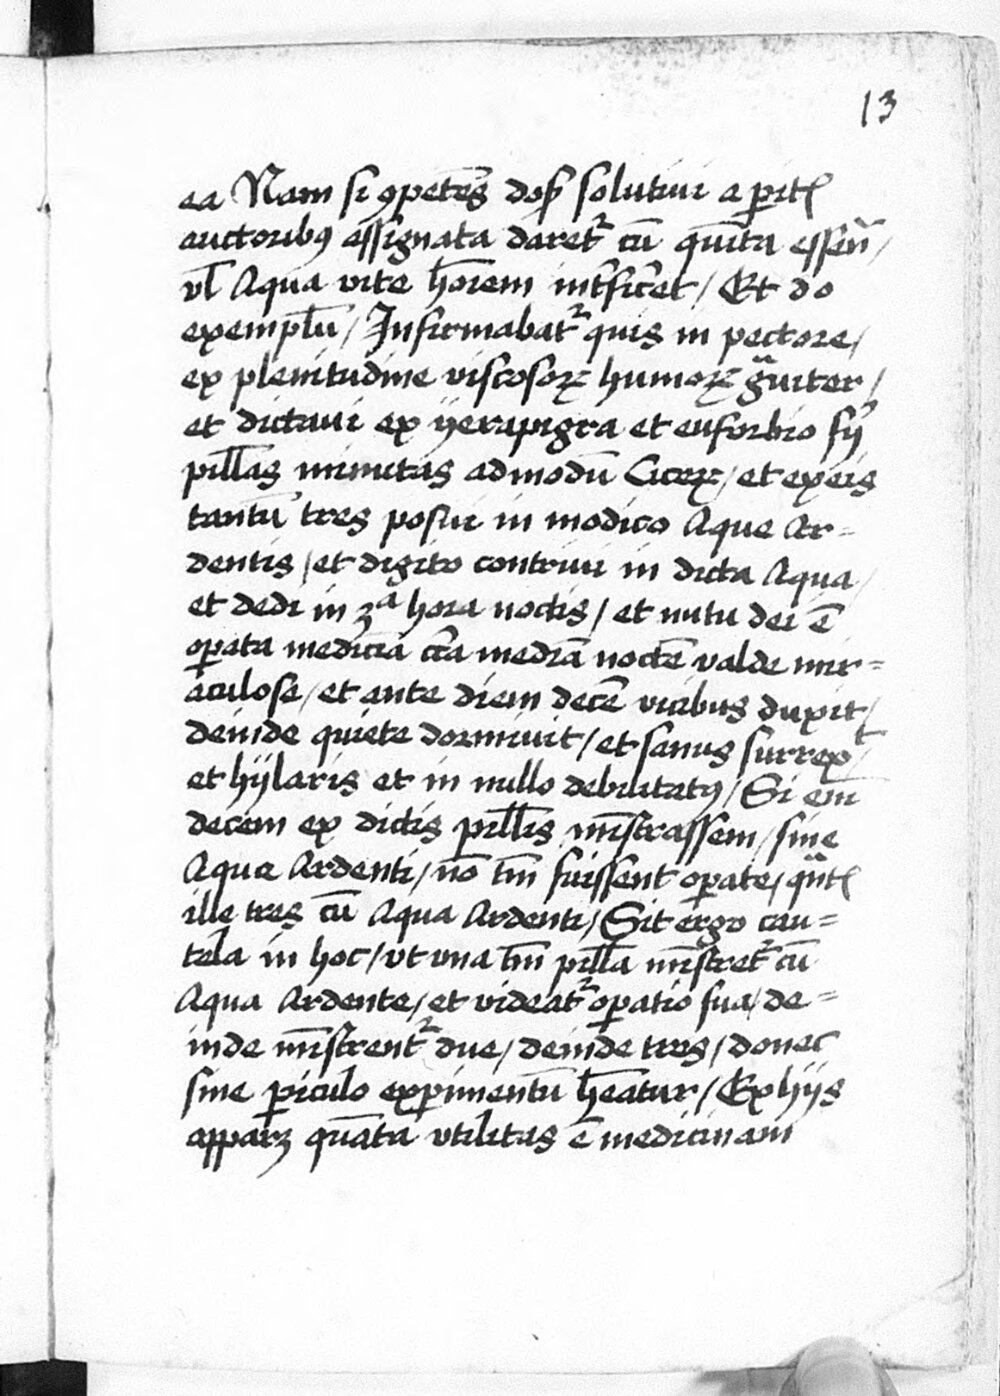 13
ea Nam si ꝯpetēs dos̄ solutiui a ꝑitꝭ
auctoribꝰ assignata daret᷑ cū quīta essen̄ /
vl̄ Aqua vite ho᷑iem int᷑fic̄et / Et do
exemplū / Infirmabat᷑ quis in pectore /
ex plenitudine viscosoꝝ humoꝝ gͣuiter /
et dictaui ex yerapigra et euforbio
pill̄as minutas admodū Ciceꝝ / et exeis
tantū tres posui in modico Aque Ar=
dentis / et digito contriui in dicta Aqua /
et dedi in 3ͣ hora noctis / et nutu dei ē
oꝑata medicīa cīca mediā noctē valde mir=
aculose / et ante diem decē vicibus duxit /
deinde quiete dormiuit / et sanus surrexͭ /
et hylaris et in nullo debilitatꝰ / Si eni᷑
decem ex dictis pill̄is mīstrassem / sine
Aqua Ardenti / nō tm̄ fuissent oꝑate / qͣntꝭ
ille tres cū Aqua Ardenti / Sit ergo cau=
tela in hoc / vt vna tm̄ pill̄a mīstret᷑ cū
Aqua Ardente / et videat᷑ oꝑatio sua / de=
inde mīstrent᷑ due / deinde tres / donec
sine ꝑiculo exꝑimentū he᷑atur / Ex hijs
apparꝫ quāta vtilitas ē medicinam